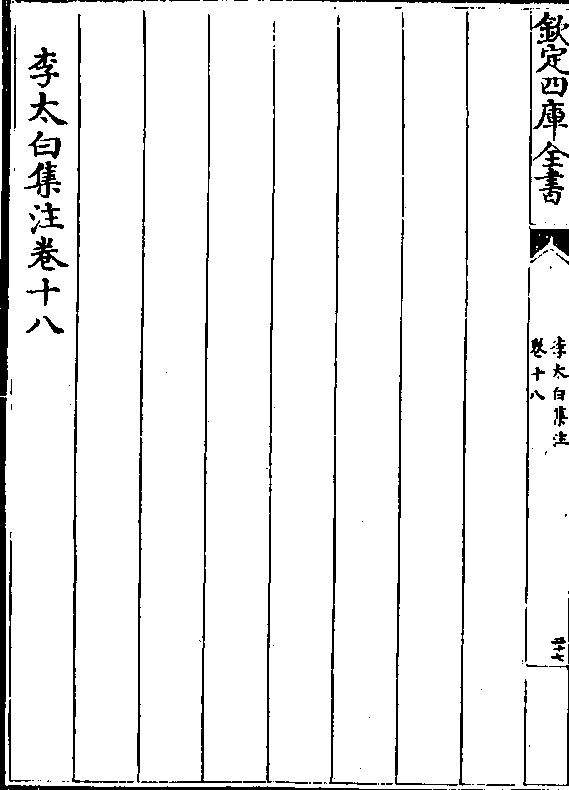 欽定四庫全書
李太白集注
卷十八
李太白集注卷十八